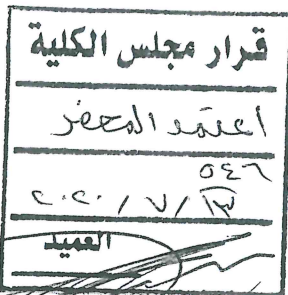 قرار مجلس الكلية
اعتمد المحضر
٥٤٦
١٣ / ٧ / ٢٠٢٠
العميد